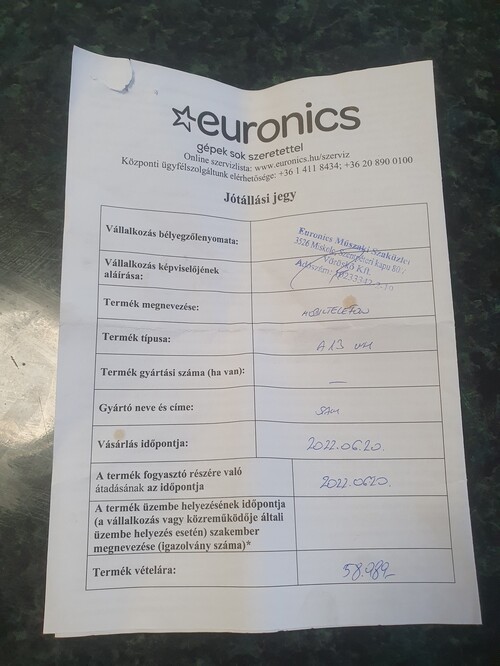 euronics
gépek sok szeretettel
Online szervizlista: www.euronics.hu/szerviz
Központi ügyfélszolgáltunk elérhetősége: +36 1 411 8434; +36 20 890 0100
Jótállási jegy
Vállalkozás bélyegzőlenyomata:
Euronics Műszaki Szaküzlet
3526 Miskolc, Szentpéteri kapu
Vöröskő Kft.
Adószám:
Vállalkozás képviselőjének
aláírása:
Termék megnevezése:
MOBILTELEFON
Termék típusa:
A13
Termék gyártási száma (ha van):
—
Gyártó neve és címe:
SAM
Vásárlás időpontja:
2022.06.20.
A termék fogyasztó részére való
átadásának az időpontja
2022.06.20.
A termék üzembe helyezésének időpontja
(a vállalkozás vagy közreműködője általi
üzembe helyezés esetén) szakember
megnevezése (igazolvány száma)*
Termék vételára:
58.989,-